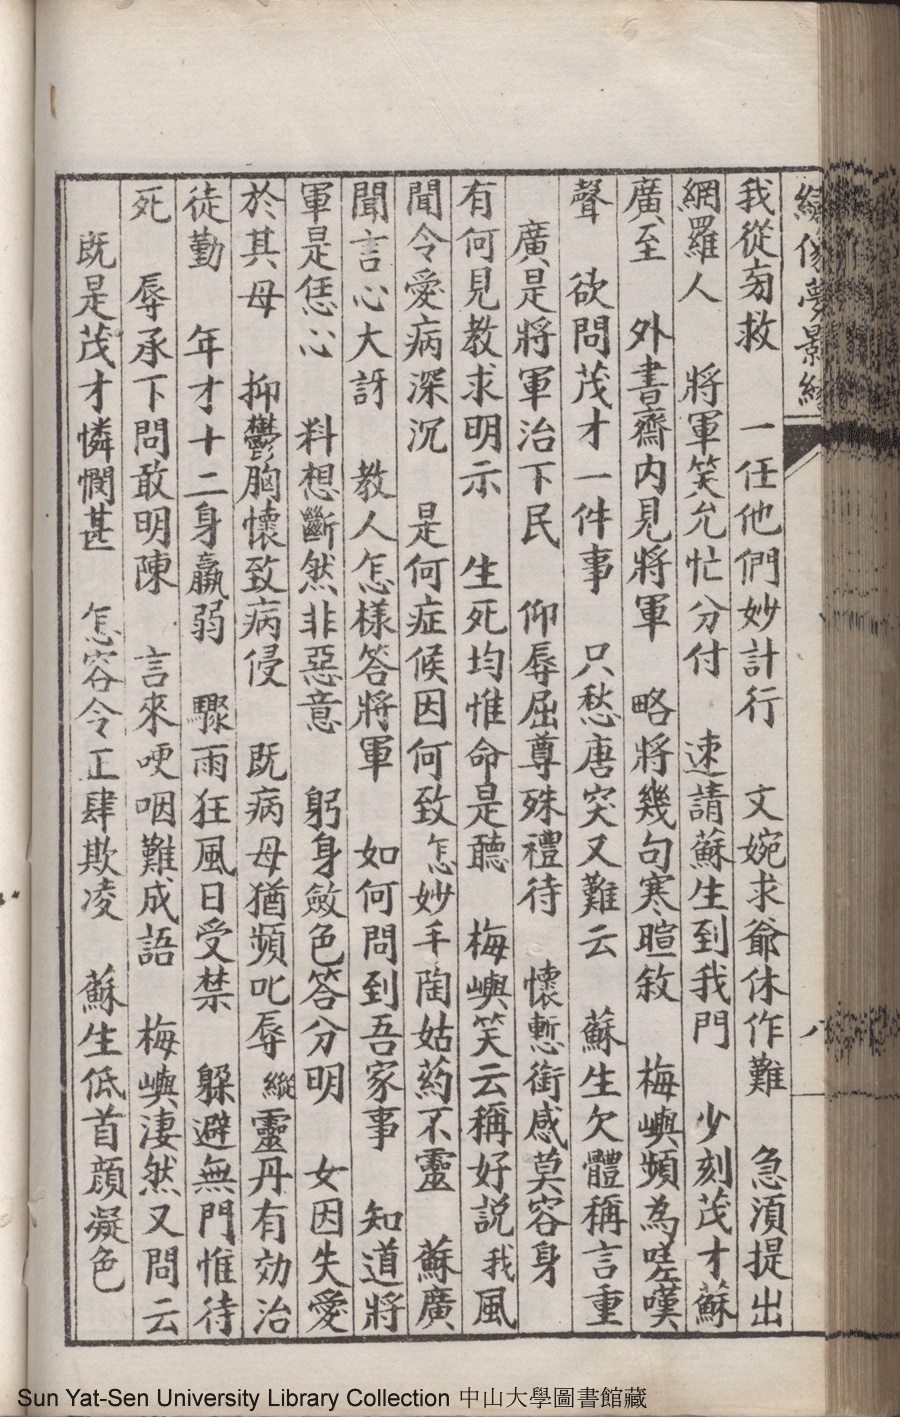 繡像夢影緣
八
我從旁救　一任他們妙計行　文婉求爺休作難　急湏提出
網羅人　將軍笑允忙分付　速請蘇生到我門　少刻茂才蘇
廣至　外書齋內見將軍　略將幾句寒暄敘　梅嶼頻為嗟嘆
聲　欲問茂才一件事　只愁唐突又難云　蘇生欠體稱言重
廣是將軍治下民　仰辱屈尊殊禮待　懷慙銜感莫容身
有何見教求明示　生死均惟命是聽　梅嶼笑云稱好説　我風
聞令愛病深沉　是何症候因何致　怎妙手陶姑葯不靈　蘇廣
聞言心大訝　教人怎樣答將軍　如何問到吾家事　知道將
軍是恁心　料想斷然非惡意　躬身斂色答分明　女因失愛
於其母　抑鬱胸懷致病侵　既病母猶頻叱辱　縱靈丹有効治
徒勤　年才十二身羸弱　驟雨狂風日受禁　躱避無門惟待
死　辱承下問敢明陳　言來哽咽難成語　梅嶼淒然又問云
既是茂才憐憫甚　怎容令正肆欺凌　蘇生低首顔凝色
Sun Yat-Sen University Library Collection 中山大學圖書館藏